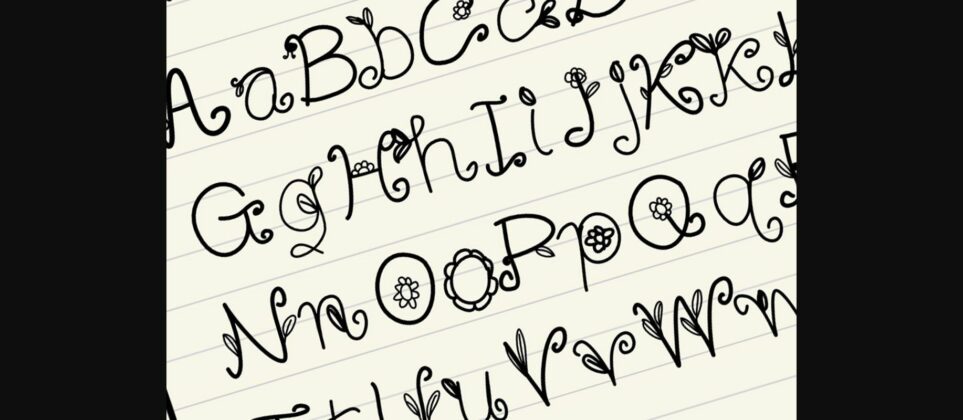 A a B b C c
G g H h I i J j K k
N n O o P p Q q
U u V v W